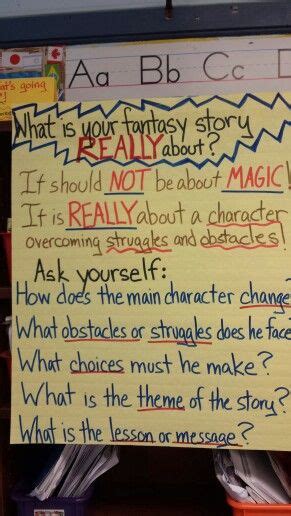 Aa Bb Cc D
what's going
What is your fantasy story
REALLY about?
It should NOT be about MAGIC!
It is REALLY about a character
overcoming struggles and obstacles!
Ask yourself:
How does the main character change
What obstacles or struggles does he face
What choices must he make?
What is the theme of the story?
What is the lesson or message?